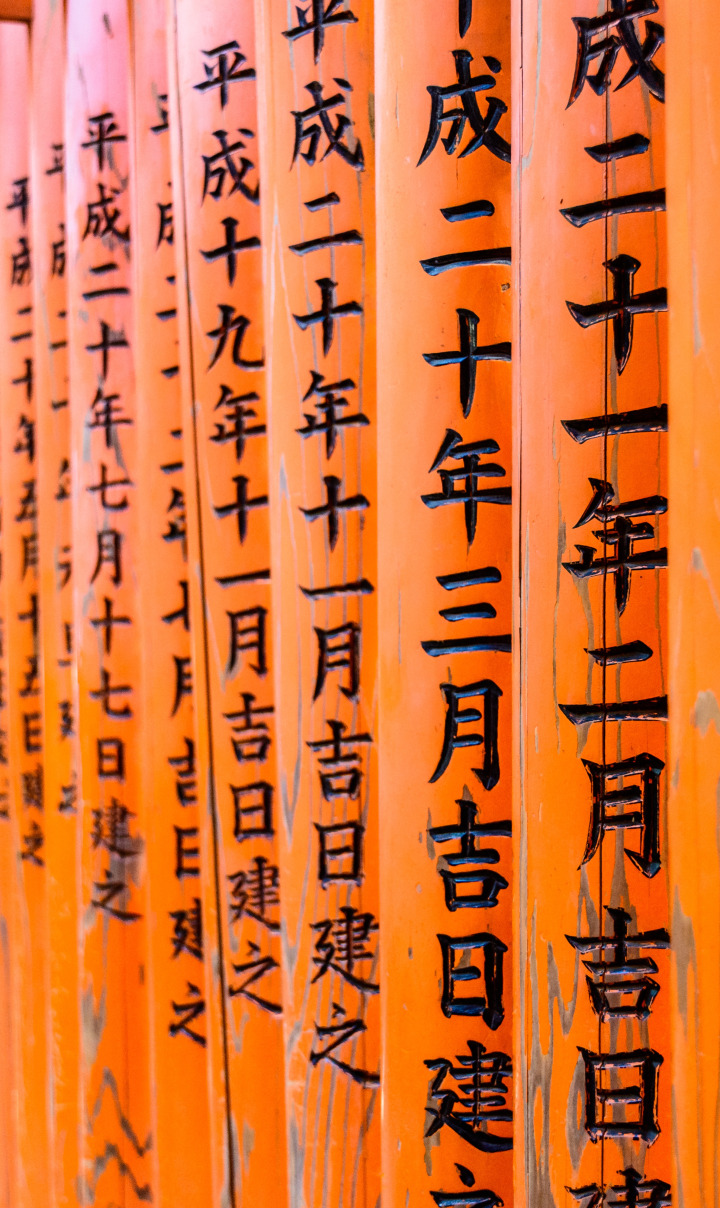 成二十一年二月吉日建
成二十年三月吉日建之
平成二十年十一月吉日建之
平成十九年十一月吉日建之
月吉日建之
平成二十年七月十七日建之
平成二十年五月十五日建之